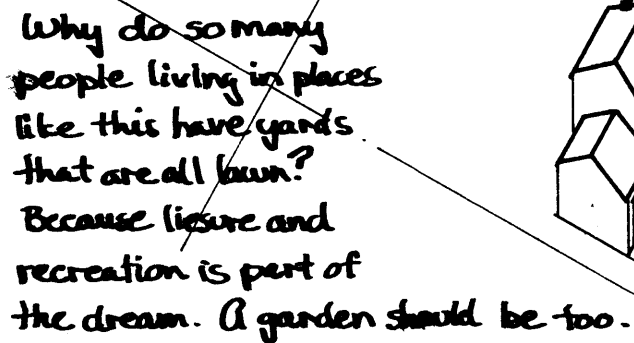 Why do so many
people living in places
like this have yards
that are all lawn?
Because liesure and
recreation is part of
the dream. A garden should be too.